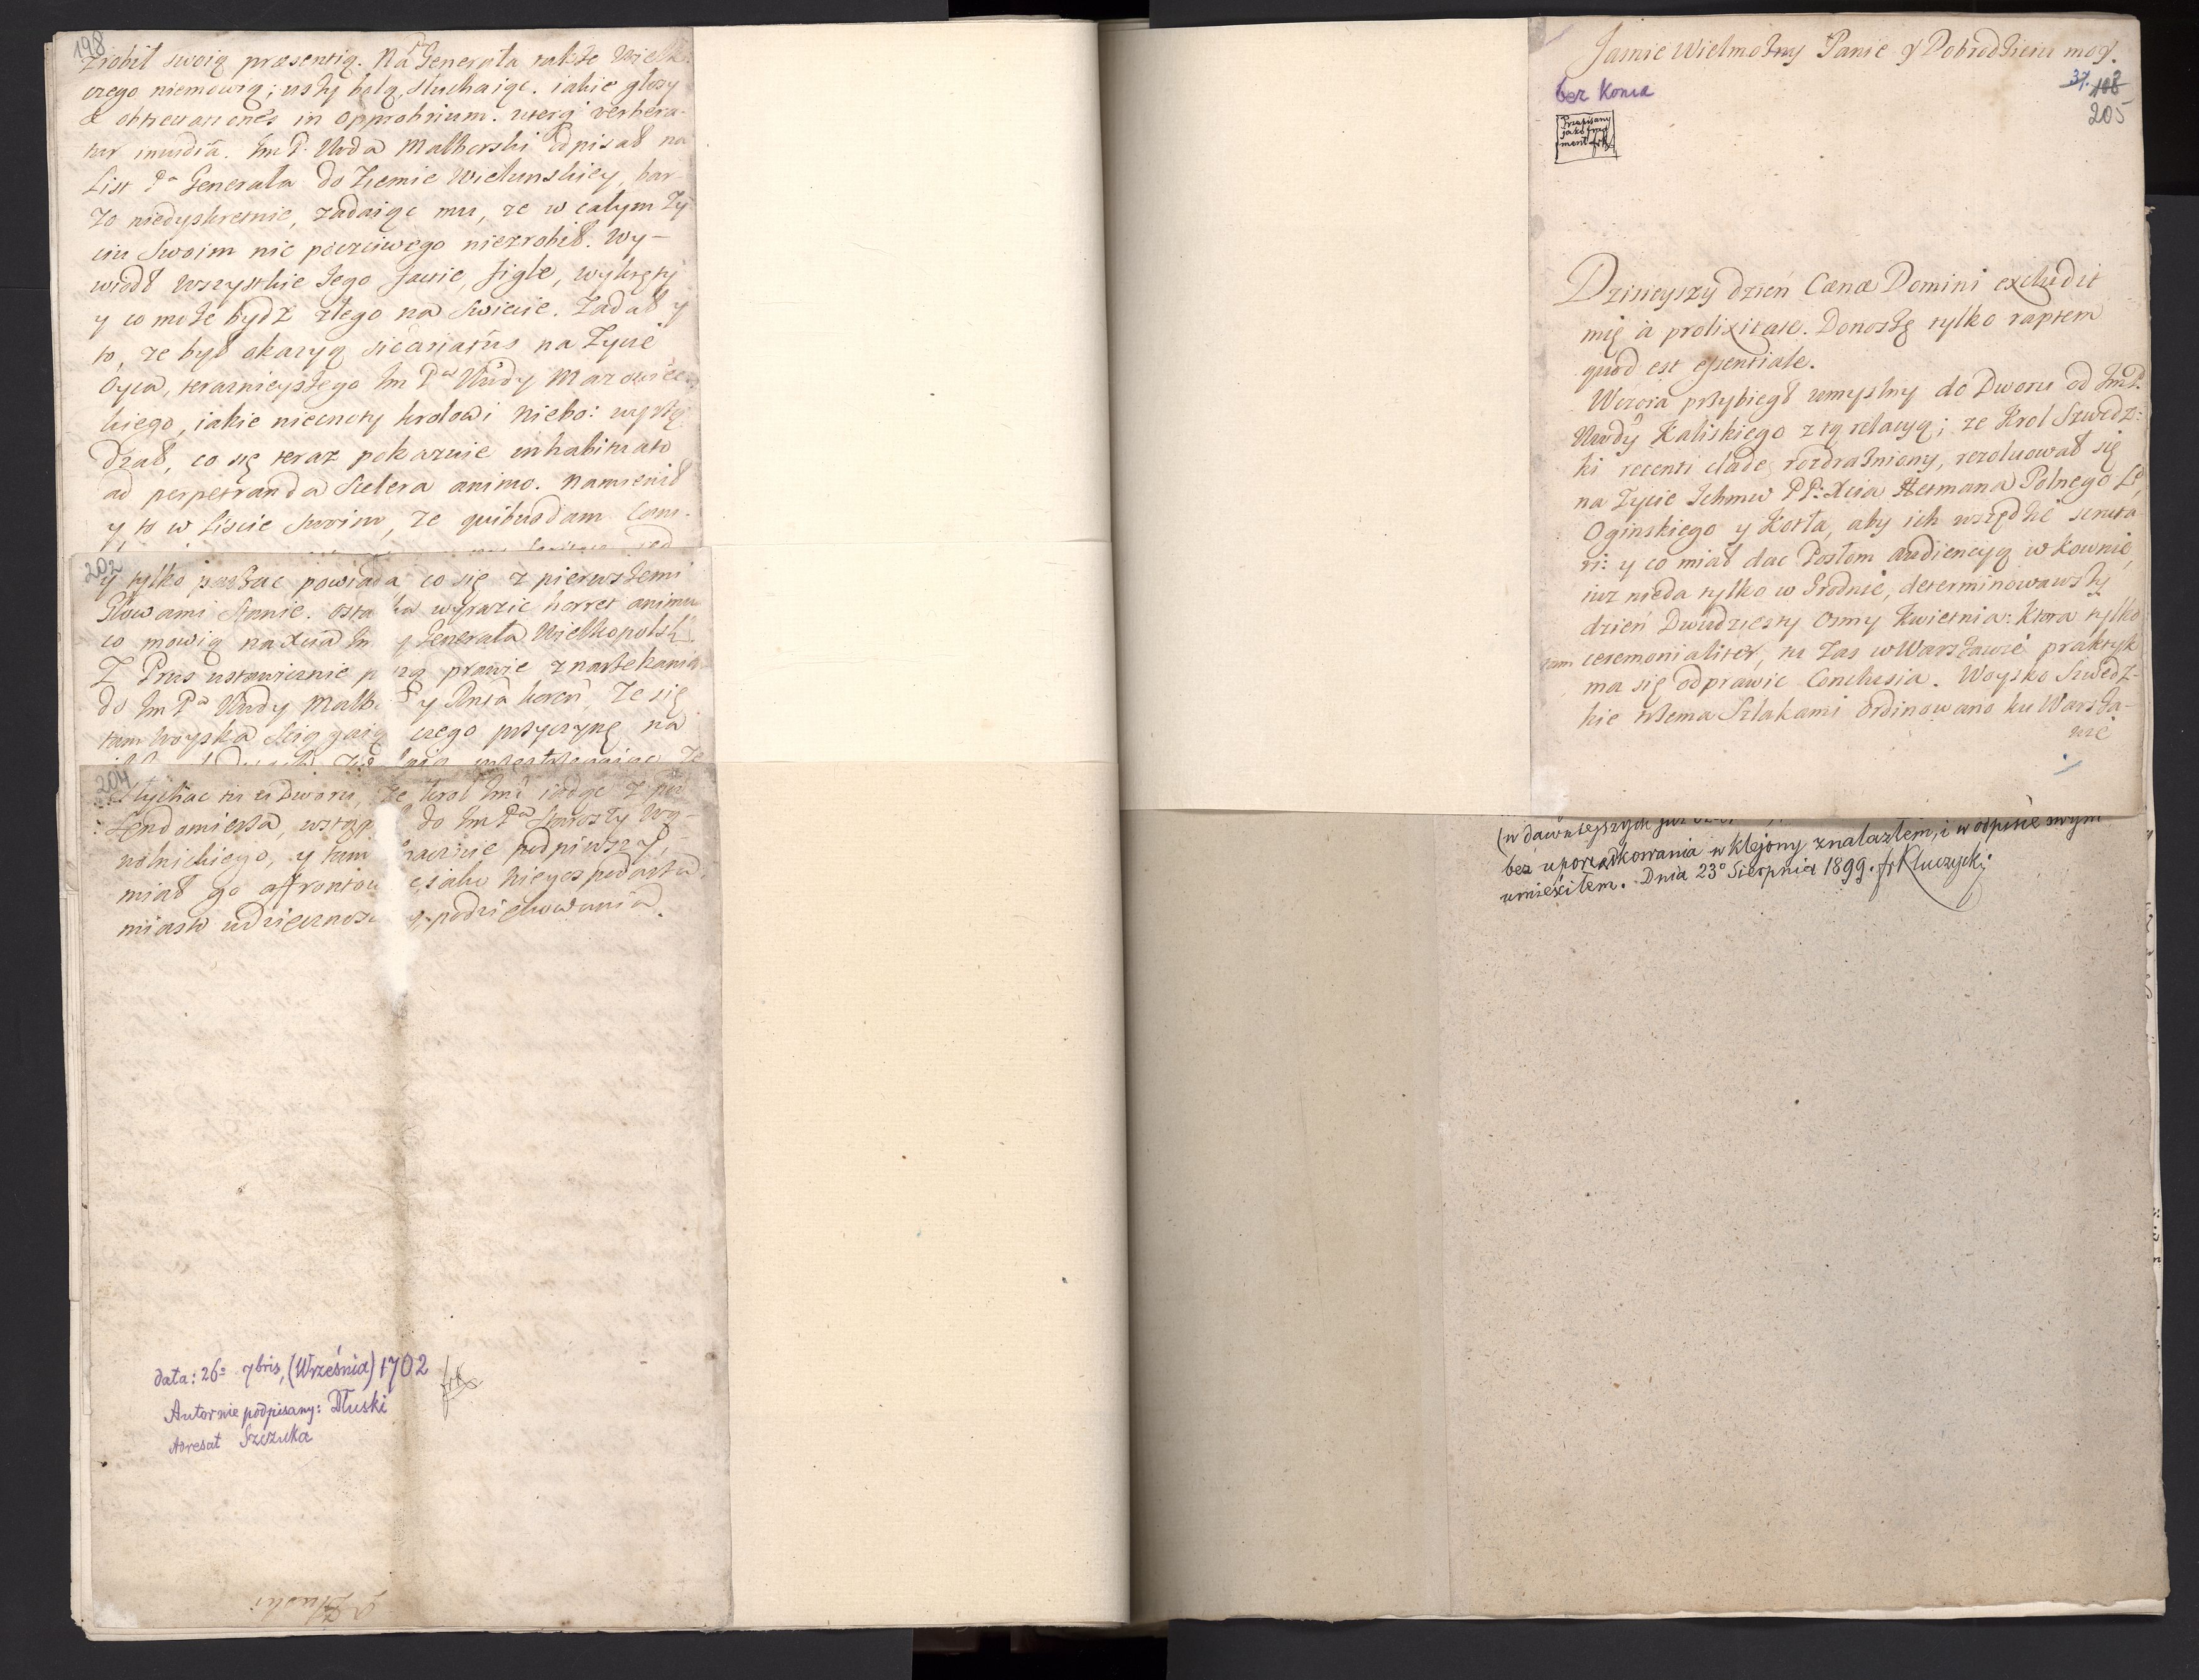 198
zrobił swoią praesentią. Na Pa Generała także Wielk
czego niemowią; uszy bolą, słuchaiąc. iakie głosy
& obtrectationes in opprobrium. uterq verbera-
tur invidiâ. Im P. Wda Malborski odpisał na
List Pa Generała do Ziemie Wielunskiey, bar-
zo niedyskretnie, zadaiąc mu, ze w całym ży
ciu Swoim nic poczciwego niezrobił. Wy-
wiódł wszystkie Jego facie, figle, wykręty
y co może bydź złego na Swiecie. Zadał y
to, ze był okazyą sicariatus na Zycie
Oyca, teraznieyszego Im Pa Wdy Mazowiec
kiego, iakie niecnoty krolowi Niebo: wyrzą
dzał, co się teraz pokazuie inhabituato
ad perpetranda Scelera animo. Namienił
y to w Liscie Swoim, ze quibusdam Com-
202
y tylko patrzac powiada co się z pierwszemi
Słowami Stanie. wyrazic horret animus
co mowią na Xcia Im y Generała Wielkopolsk.
Z Prus ustawicznie prawie z narzekania
do Im Pa Wdy Malb y Xnia horen, Ze się
tam Woyska sciągaią czego przyczynę na
204
Słychac tu u Dworu, ze krol Imć iadąc z pod
Sendomierza, wstąp do Im Pa Starosty Wy-
miał go affrontow iako niegospodarza,
miasto wdzięcznosc y podziękowania.
data: 26a 7bris, (Września) 1702
Autor nie podpisany: Dłuski
Adresat Szczuka
frK
Dłuski
Jasnie Wielmożny Panie y Dobrodzieiu moy.
bez Konca
37. 108
205
Przepisany
jako frag
ment frK
Dzisieyszy dzień Cœnæ Domini excludit
mię à prolixitate. Donoszę tylko raptem
quod est essentiale.
Wczora przybiegł umyslny do Dworu od Im P.
Wdy Kaliskiego z tą relacyą; ze Krol Szwedz-
ki recenti clade rozdrażniony, rezolwował się
na Zycie Ichmw PP: Xcia Hetmana Polnego Lit,
Oginskiego y Kotła, aby ich wszędzie scruta
ri: y co miał dac Posłom audiencyą w Kownie,
iuz nieda tylko w Grodnie, determinowawszy
dzień Dwudziesty Osmy Kwietnia: Ktora tylko
tam ceremonialiter, tu Zas w Warszawie praktyk
ma się odprawic Conclusia. Woysko Szwedz-
kie trzema Szlakami ordinowano ku Warsza-
wie
bez uporządkowania wklejony znalazłem, i w odpisie swym
umieściłem. Dnia 23o Sierpnia 1899. frKluczycki